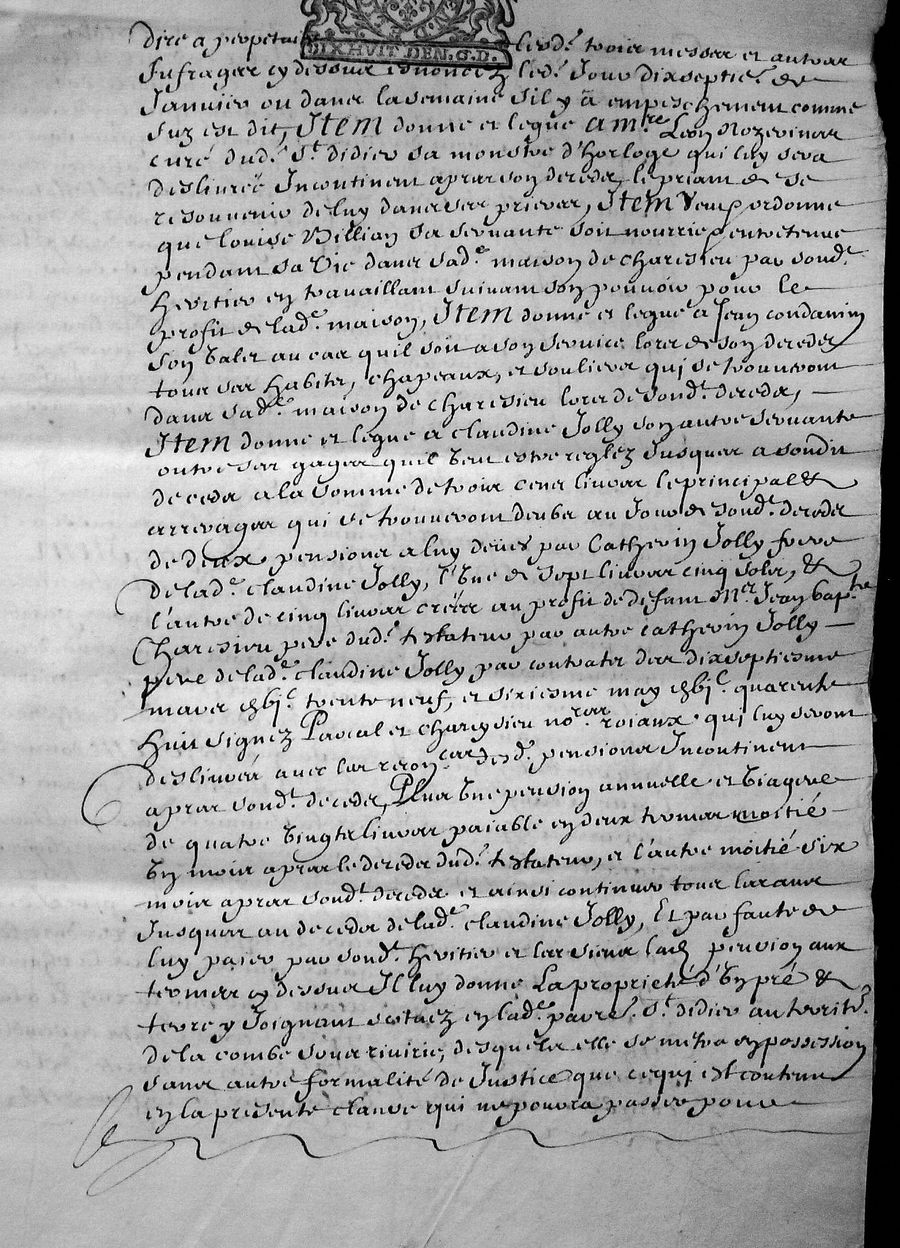 DIX HUIT DEN. G. D.
dire a perpetuité lesd. trois messes et autres
sufrages cy dessus enoncez led. jour dixseptie. de
Janvier ou dans la semaine s'il y a empeschement comme
sus est dit, Item donne et legue a mre Leon Rozevinar
curé dud. St. didier sa monstre d'horloge qui luy sera
deslivrée Incontinent apres son deceds, le priant de se
resouvenir de luy dans ses prieres, Item veut ordonne
que louise Billian sa servante soit nourrie entretenue
pendant sa vie dans sad. maison de charesieu par sond.
heritier en travaillant suivant son pouvoir pour le
profit de lad. maison, Item donne et legue a Jean condamin
son valet au cas qu'il soit a son service lors de son deceds
tous ses habits, chapeaux, et souliers qui se trouveront
dans sad. maison de charesieu lors de sond. deceds,
Item donne et legue a claudine Jolly son autre servante
outre ses gages qu'il veut estre reglez jusques a sondit
deceds a la somme de trois cens livres le principal et
arrerages qui se trouveront deubs au jour de sond. deceds
de deux pensions a luy deues par Catherin Jolly frere
de lad. claudine Jolly, l'une de sept livres cinq sols, et
l'autre de cinq livres créées au profit de defunt Mr. Jean bapte
Charesieu pere dud. testateur par autre catherin Jolly
pere de lad. claudine Jolly par contrats des dixseptiesme
mars gbjc. trente neuf, et sixiesme may gbjc. quarente
huit signez Pascal et Charesieu nores roiaux qui luy seront
deslivrés avec les desd. pensions Incontinent
apres sond. deceds, Plus une pension annuelle et viagere
de quatre vingts livres paiable en deux termes moitié
six mois apres le deceds dud. testateur, et l'autre moitié six
mois apres sond. deceds et ainsi continuer tous les ans
jusques au deceds de lad. claudine Jolly, Et par faute de
luy paier par sond. heritier et les siens lad. pension aux
termes cy dessus Il luy donne La propriete d'un pré et
terre y joignant scituez en lad. parre. St. didier au territ.
de la combe sous rivirie, desquels elle se métra en possession
sans autre formalité de Justice que ce qui est contenu
en la presente clause qui ne poura passer pour